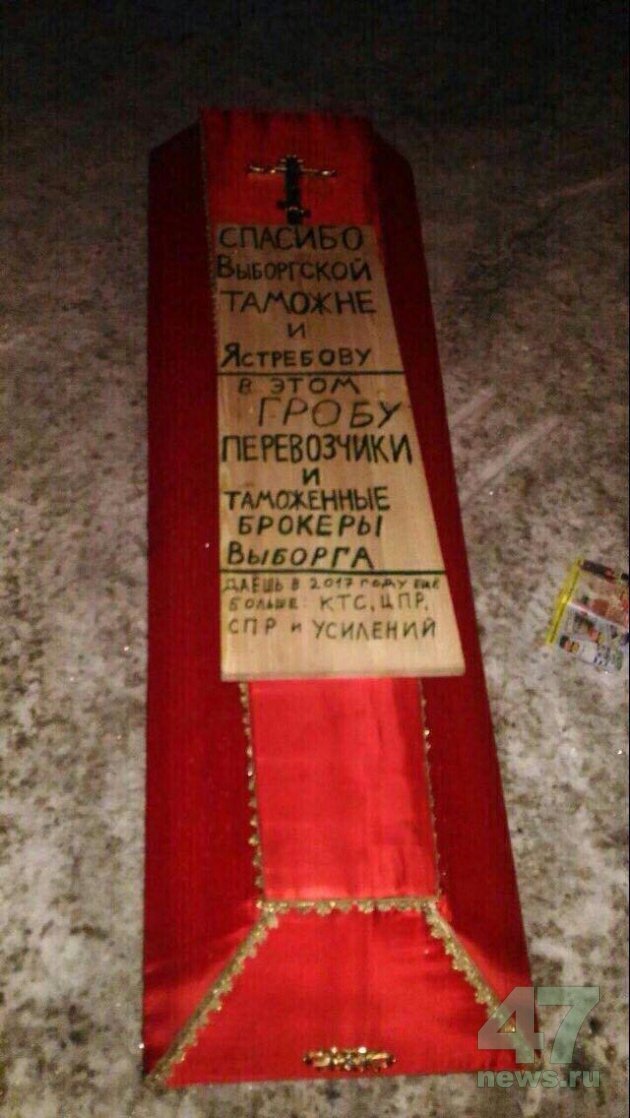 СПАСИБО
ВЫБОРГСКОЙ
ТАМОЖНЕ
И
ЯСТРЕБОВУ
В ЭТОМ
ГРОБУ
ПЕРЕВОЗЧИКИ
И
ТАМОЖЕННЫЕ
БРОКЕРЫ
ВЫБОРГА
ДАЁШЬ В 2017 ГОДУ ЕЩЁ
БОЛЬШЕ: КТС, ЦПР,
СПР И УСИЛЕНИЙ
47
news.ru